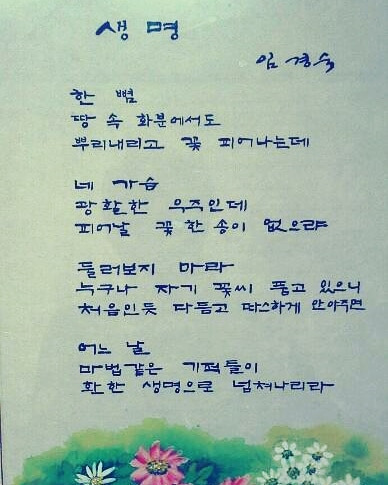 생 명
임 경숙
한 뼘
땅 속 화분에서도
뿌리내리고 꽃 피어나는데
네 가슴
광활한 우주인데
피어날 꽃 한 송이 없으랴
둘러보지 마라
누구나 자기 꽃씨 품고 있으니
처음인듯 다듬고 따스하게 안아주면
어느 날
마법같은 기적들이
환한 생명으로 넘쳐나리라